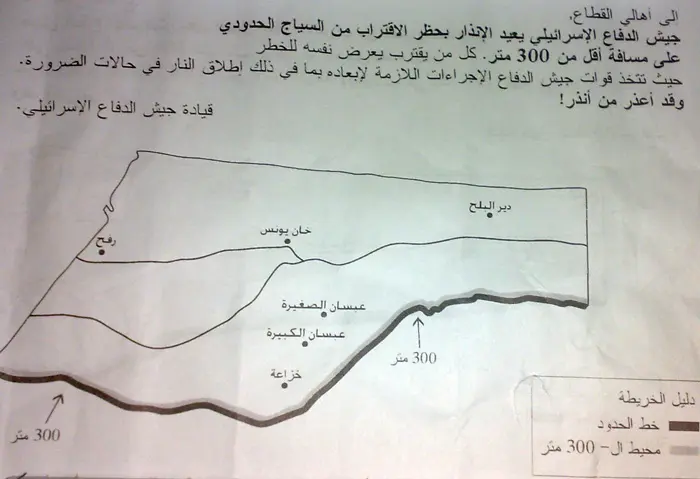 الى أهالي القطاع,
جيش الدفاع الإسرائيلي يعيد الإنذار بحظر الاقتراب من السياج الحدودي
على مسافة أقل من 300 متر. كل من يقترب يعرض نفسه للخطر
حيث تتخذ قوات جيش الدفاع الإجراءات اللازمة لإبعاده بما في ذلك إطلاق النار في حالات الضرورة.
وقد أعذر من أنذر!
قيادة جيش الدفاع الإسرائيلي.
دير البلح
خان يونس
رفح
عبسان الصغيرة
عبسان الكبيرة
خزاعة
300 متر
300 متر
دليل الخريطة
خط الحدود
محيط ال- 300 متر